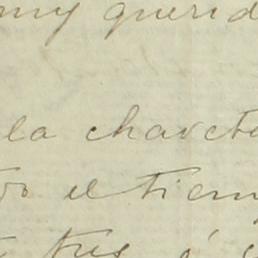 muy querid
la charct
el tiem
tres